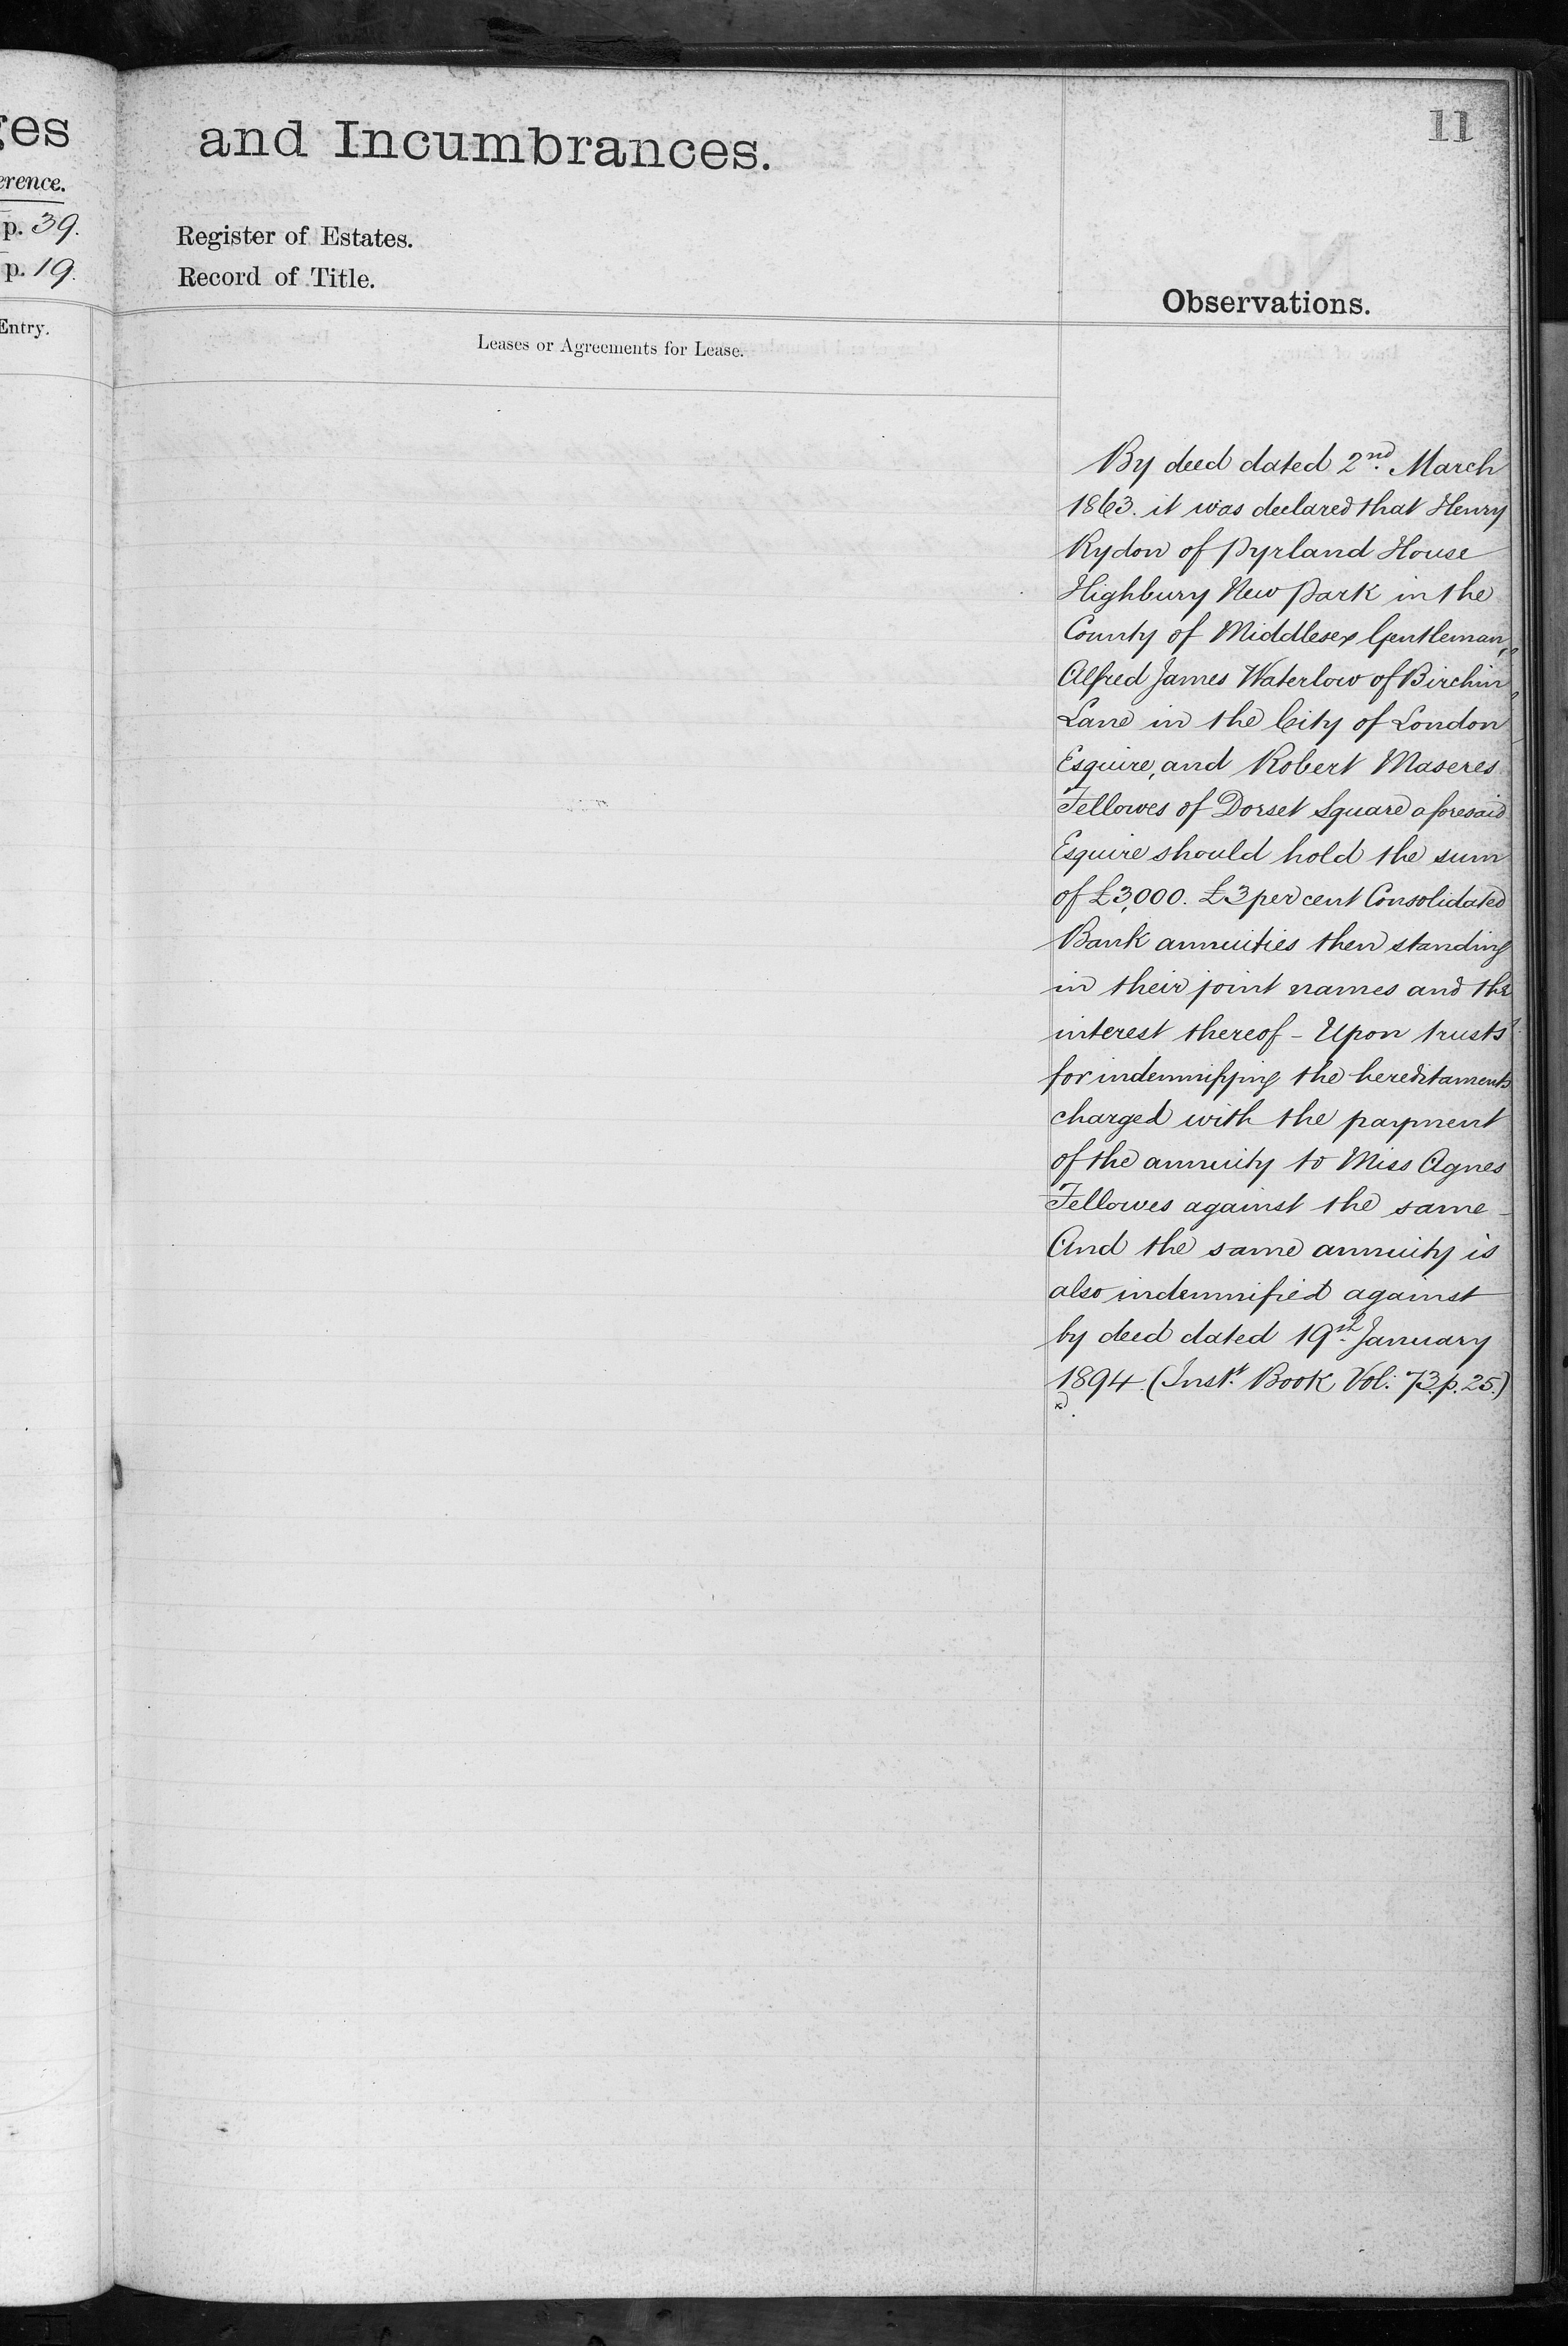 ges
erence.
p. 39.
p. 19.
Entry.
11
and Incumbrances.
Register of Estates.
Record of Title.
Observations.
Leases or Agreements for Lease.
By deed dated 2nd. March
1863. it was declared that Henry
Rydon of Pyrland House
Highbury New Park in the
County of Middlesex Gentleman,
Alfred James Waterlow of Birchin
Lane in the City of London
Esquire, and Robert Maseres
Fellowes of Dorset Square aforesaid
Esquire should hold the sum
of £3,000. £3 per cent Consolidated
Bank annuities then standing
in their joint names and the
interest thereof - Upon trusts
for indemnifying the hereditaments
charged with the payment
of the annuity to Miss Agnes
Fellowes against the same -
And the same annuity is
also indemnified against
by deed dated 19th. January
1894. (Inst. Book Vol: 73. p. 25.)